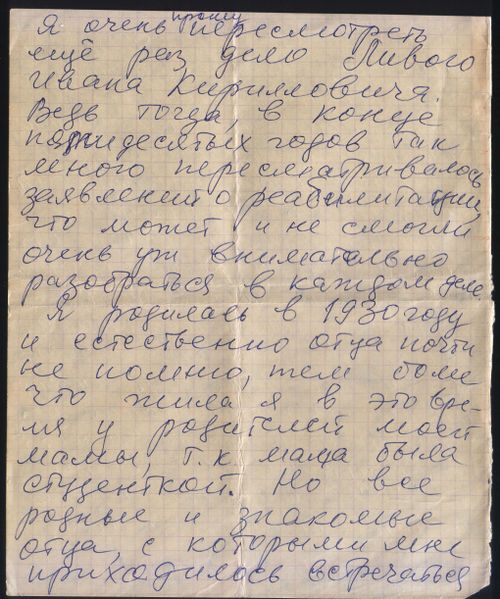 Я очень прошу пересмотреть
ещё раз дело Ливого
Ивана Кирилловича.
Ведь тогда в конце
пятидесятых годов так
много пересматривалось
заявлений о реабилитации
что может и не смогли
очень уж внимательно
разобраться в каждом деле
Я родилась в 1930 году
и естественно отца почти
не помню, тем боле
что жила я в это вре-
мя у родителей моей
мамы, т.к. мама была
студенткой. Но все
родные и знакомые
отца, с которыми мне
приходилось встречаться